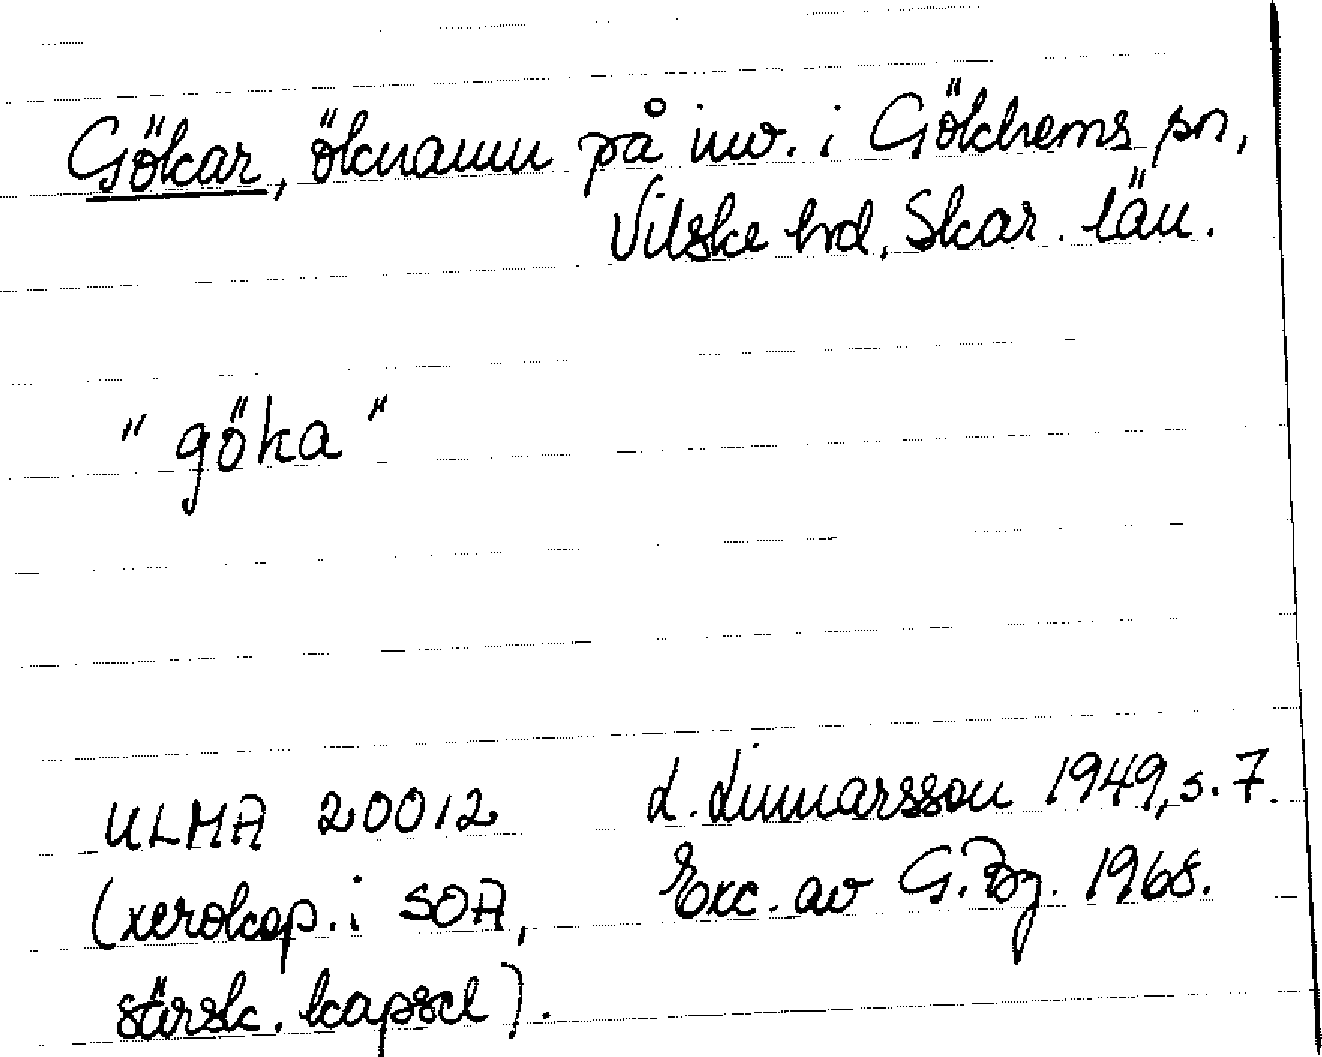 Gökar, öknamn på inv. i Gökhems sn,
Vilske hd, Skar. län.
"göka"
ULMA 20012 L. Linnarsson 1949, s. 7.
(xerokop. i SOA, Exc. av G. Bg. 1968.
särsk. kapsel).